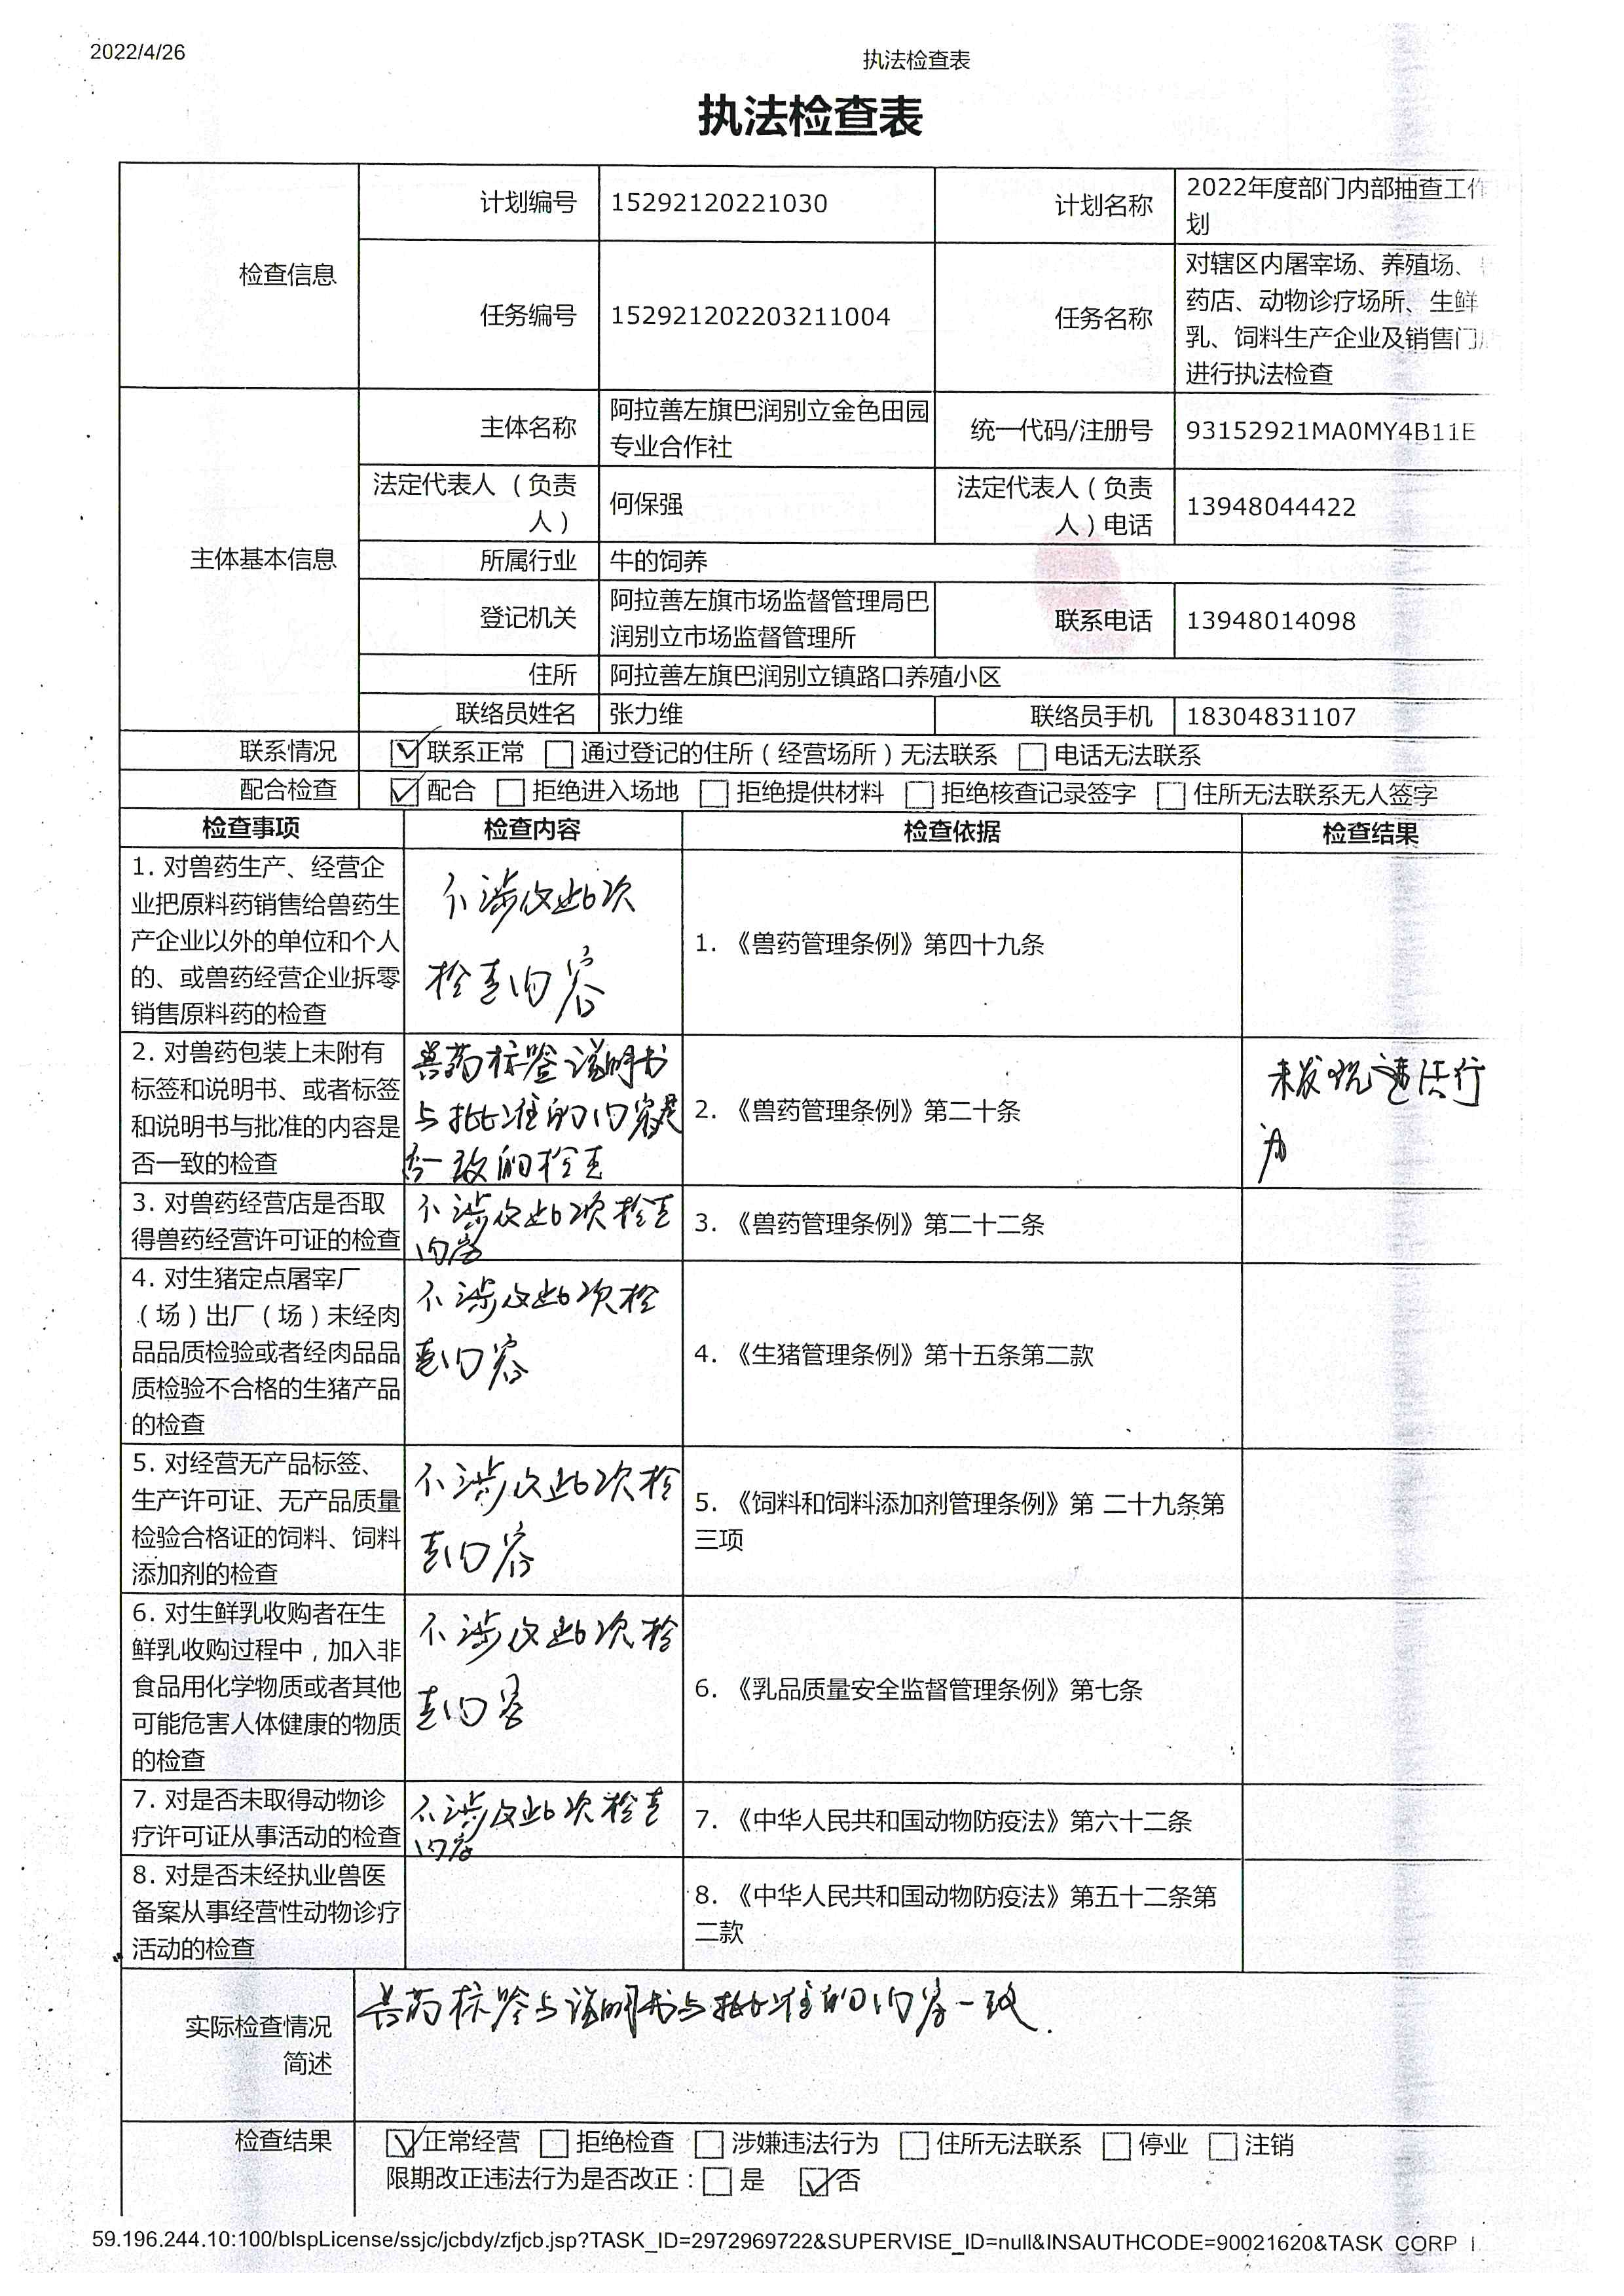 2022/4/26
执法检查表
执法检查表
检查信息
计划编号
15292120221030
计划名称
2022年度部门内部抽查工作
划
任务编号
152921202203211004
任务名称
对辖区内屠宰场、养殖场、
药店、动物诊疗场所、生鲜
乳、饲料生产企业及销售门
进行执法检查
主体基本信息
主体名称
阿拉善左旗巴润别立金色田园
专业合作社
统一代码/注册号
93152921MA0MY4B11E
法定代表人（负责
人）
何保强
法定代表人（负责
人）电话
13948044422
所属行业
牛的饲养
登记机关
阿拉善左旗市场监督管理局巴
润别立市场监督管理所
联系电话
13948014098
住所
阿拉善左旗巴润别立镇路口养殖小区
联络员姓名
张力维
联络员手机
18304831107
联系情况
联系正常 通过登记的住所（经营场所）无法联系 电话无法联系
配合检查
配合 拒绝进入场地 拒绝提供材料 拒绝核查记录签字 住所无法联系无人签字
检查事项 检查内容 检查依据 检查结果
1. 对兽药生产、经营企
业把原料药销售给兽药生
产企业以外的单位和个人
的、或兽药经营企业拆零
销售原料药的检查
不涉及此次
检查内容
1. 《兽药管理条例》第四十九条
2. 对兽药包装上未附有
标签和说明书、或者标签
和说明书与批准的内容是
否一致的检查
兽药标签说明书
与批准的内容是
否一致的检查
2. 《兽药管理条例》第二十条
未发现违法行
为
3. 对兽药经营店是否取
得兽药经营许可证的检查
不涉及此次检查
内容
3. 《兽药管理条例》第二十二条
4. 对生猪定点屠宰厂
（场）出厂（场）未经肉
品品质检验或者经肉品品
质检验不合格的生猪产品
的检查
不涉及此次检
查内容
4. 《生猪管理条例》第十五条第二款
5. 对经营无产品标签、
生产许可证、无产品质量
检验合格证的饲料、饲料
添加剂的检查
不涉及此次检
查内容
5. 《饲料和饲料添加剂管理条例》第 二十九条第
三项
6. 对生鲜乳收购者在生
鲜乳收购过程中，加入非
食品用化学物质或者其他
可能危害人体健康的物质
的检查
不涉及此次检
查内容
6. 《乳品质量安全监督管理条例》第七条
7. 对是否未取得动物诊
疗许可证从事活动的检查
不涉及此次检查
内容
7. 《中华人民共和国动物防疫法》第六十二条
8. 对是否未经执业兽医
备案从事经营性动物诊疗
活动的检查
8. 《中华人民共和国动物防疫法》第五十二条第
二款
实际检查情况
简述
兽药标签与说明书与批准的内容一致.
检查结果
正常经营 拒绝检查 涉嫌违法行为 住所无法联系 停业 注销
限期改正违法行为是否改正：是 否
59.196.244.10:100/blspLicense/ssjc/jcbdy/zfjcb.jsp?TASK_ID=2972969722&SUPERVISE_ID=null&INSAUTHCODE=90021620&TASK_CORP_I